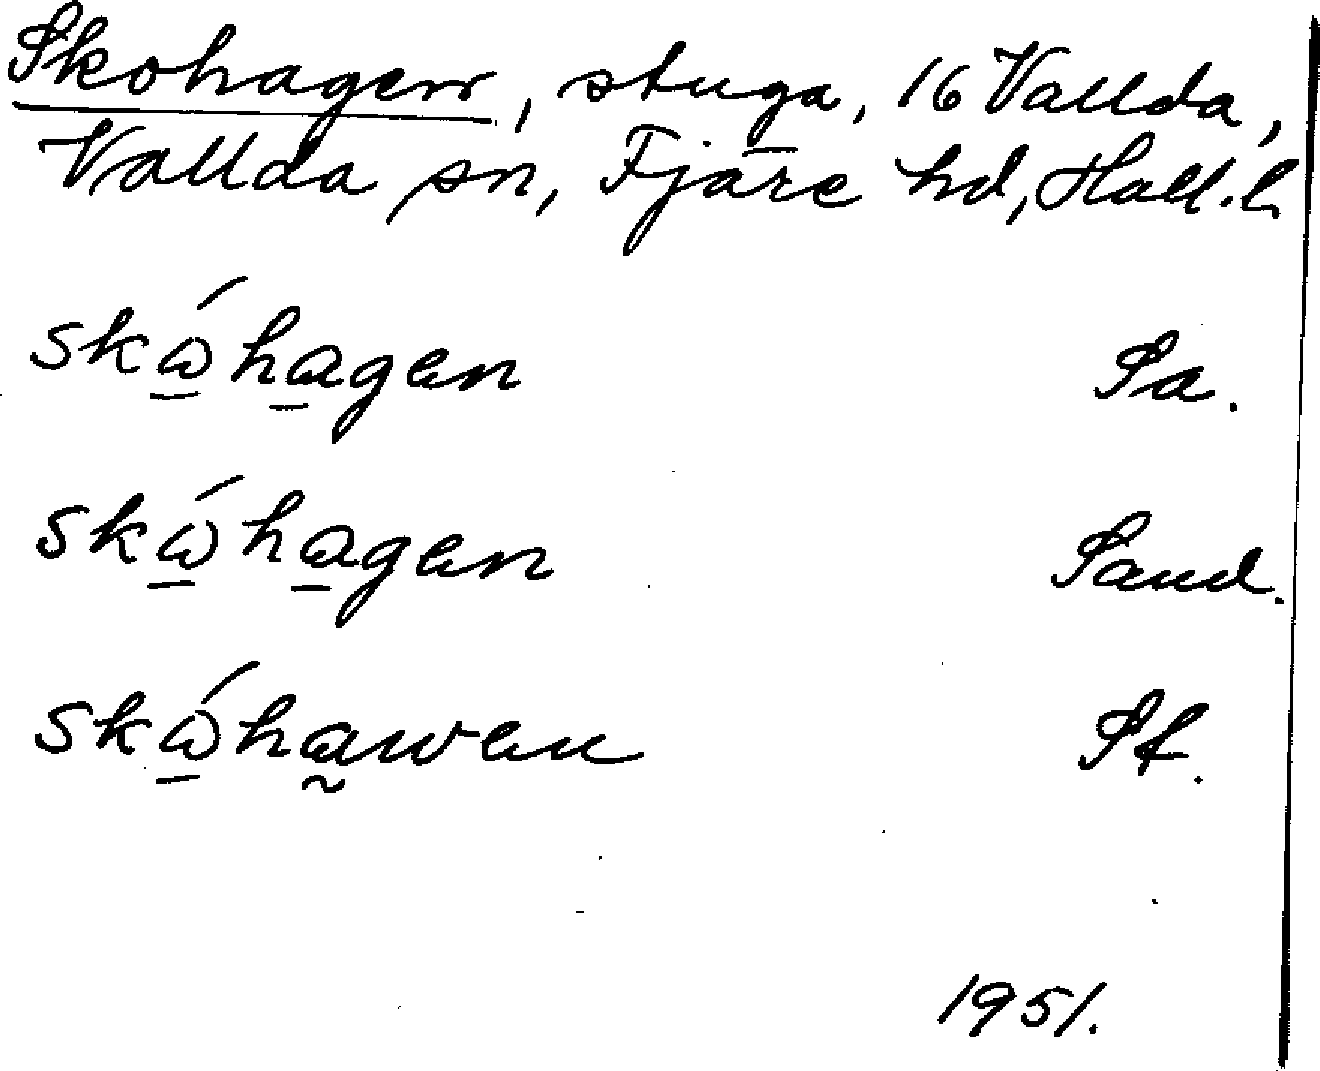 Skohagen, stuga, 16 Vallda,
Vallda sn, Fjäre hd, Hall. l.
skώ̲ha̲gen Sa.
skώ̲ha̲gen Sand.
skώ̲ha̰wen Sf.
1951.